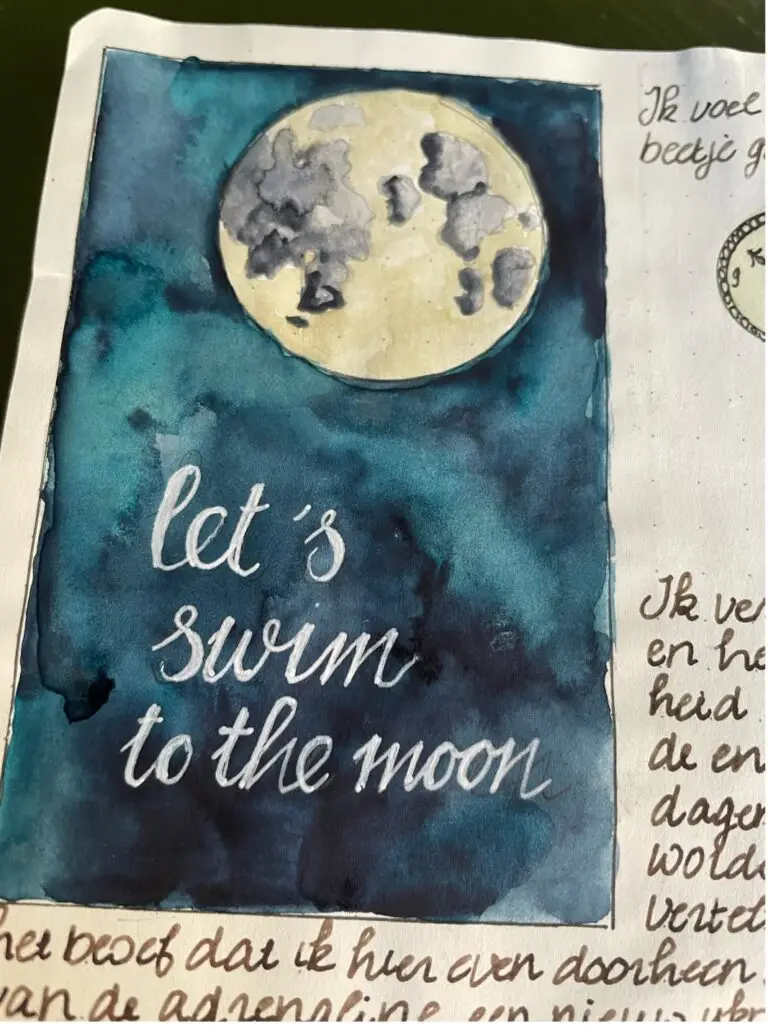 let's
swim
to the moon
Ik voel
beetje g
Ik ve
en he
heid
de en
dagen
wolde
vertel
het besef dat ik hier even doorheen
van de adrenaline een nieuw